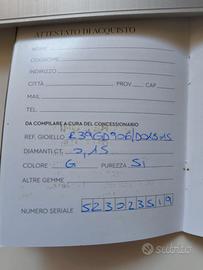 ATTESTATO DI ACQUISTO
NOME
COGNOME
INDIRIZZO
CITTÀ PROV. CAP
MAIL
TEL.
DA COMPILARE A CURA DEL CONCESSIONARIO
REF. GIOIELLO
DIAMANTI CT. 0,15
COLORE G PUREZZA SI
ALTRE GEMME
NUMERO SERIALE 523023519
subito